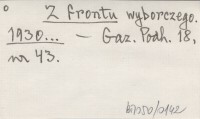 Z frontu wyborczego.
1930... — Gaz. Podh. 18,
nr 43.